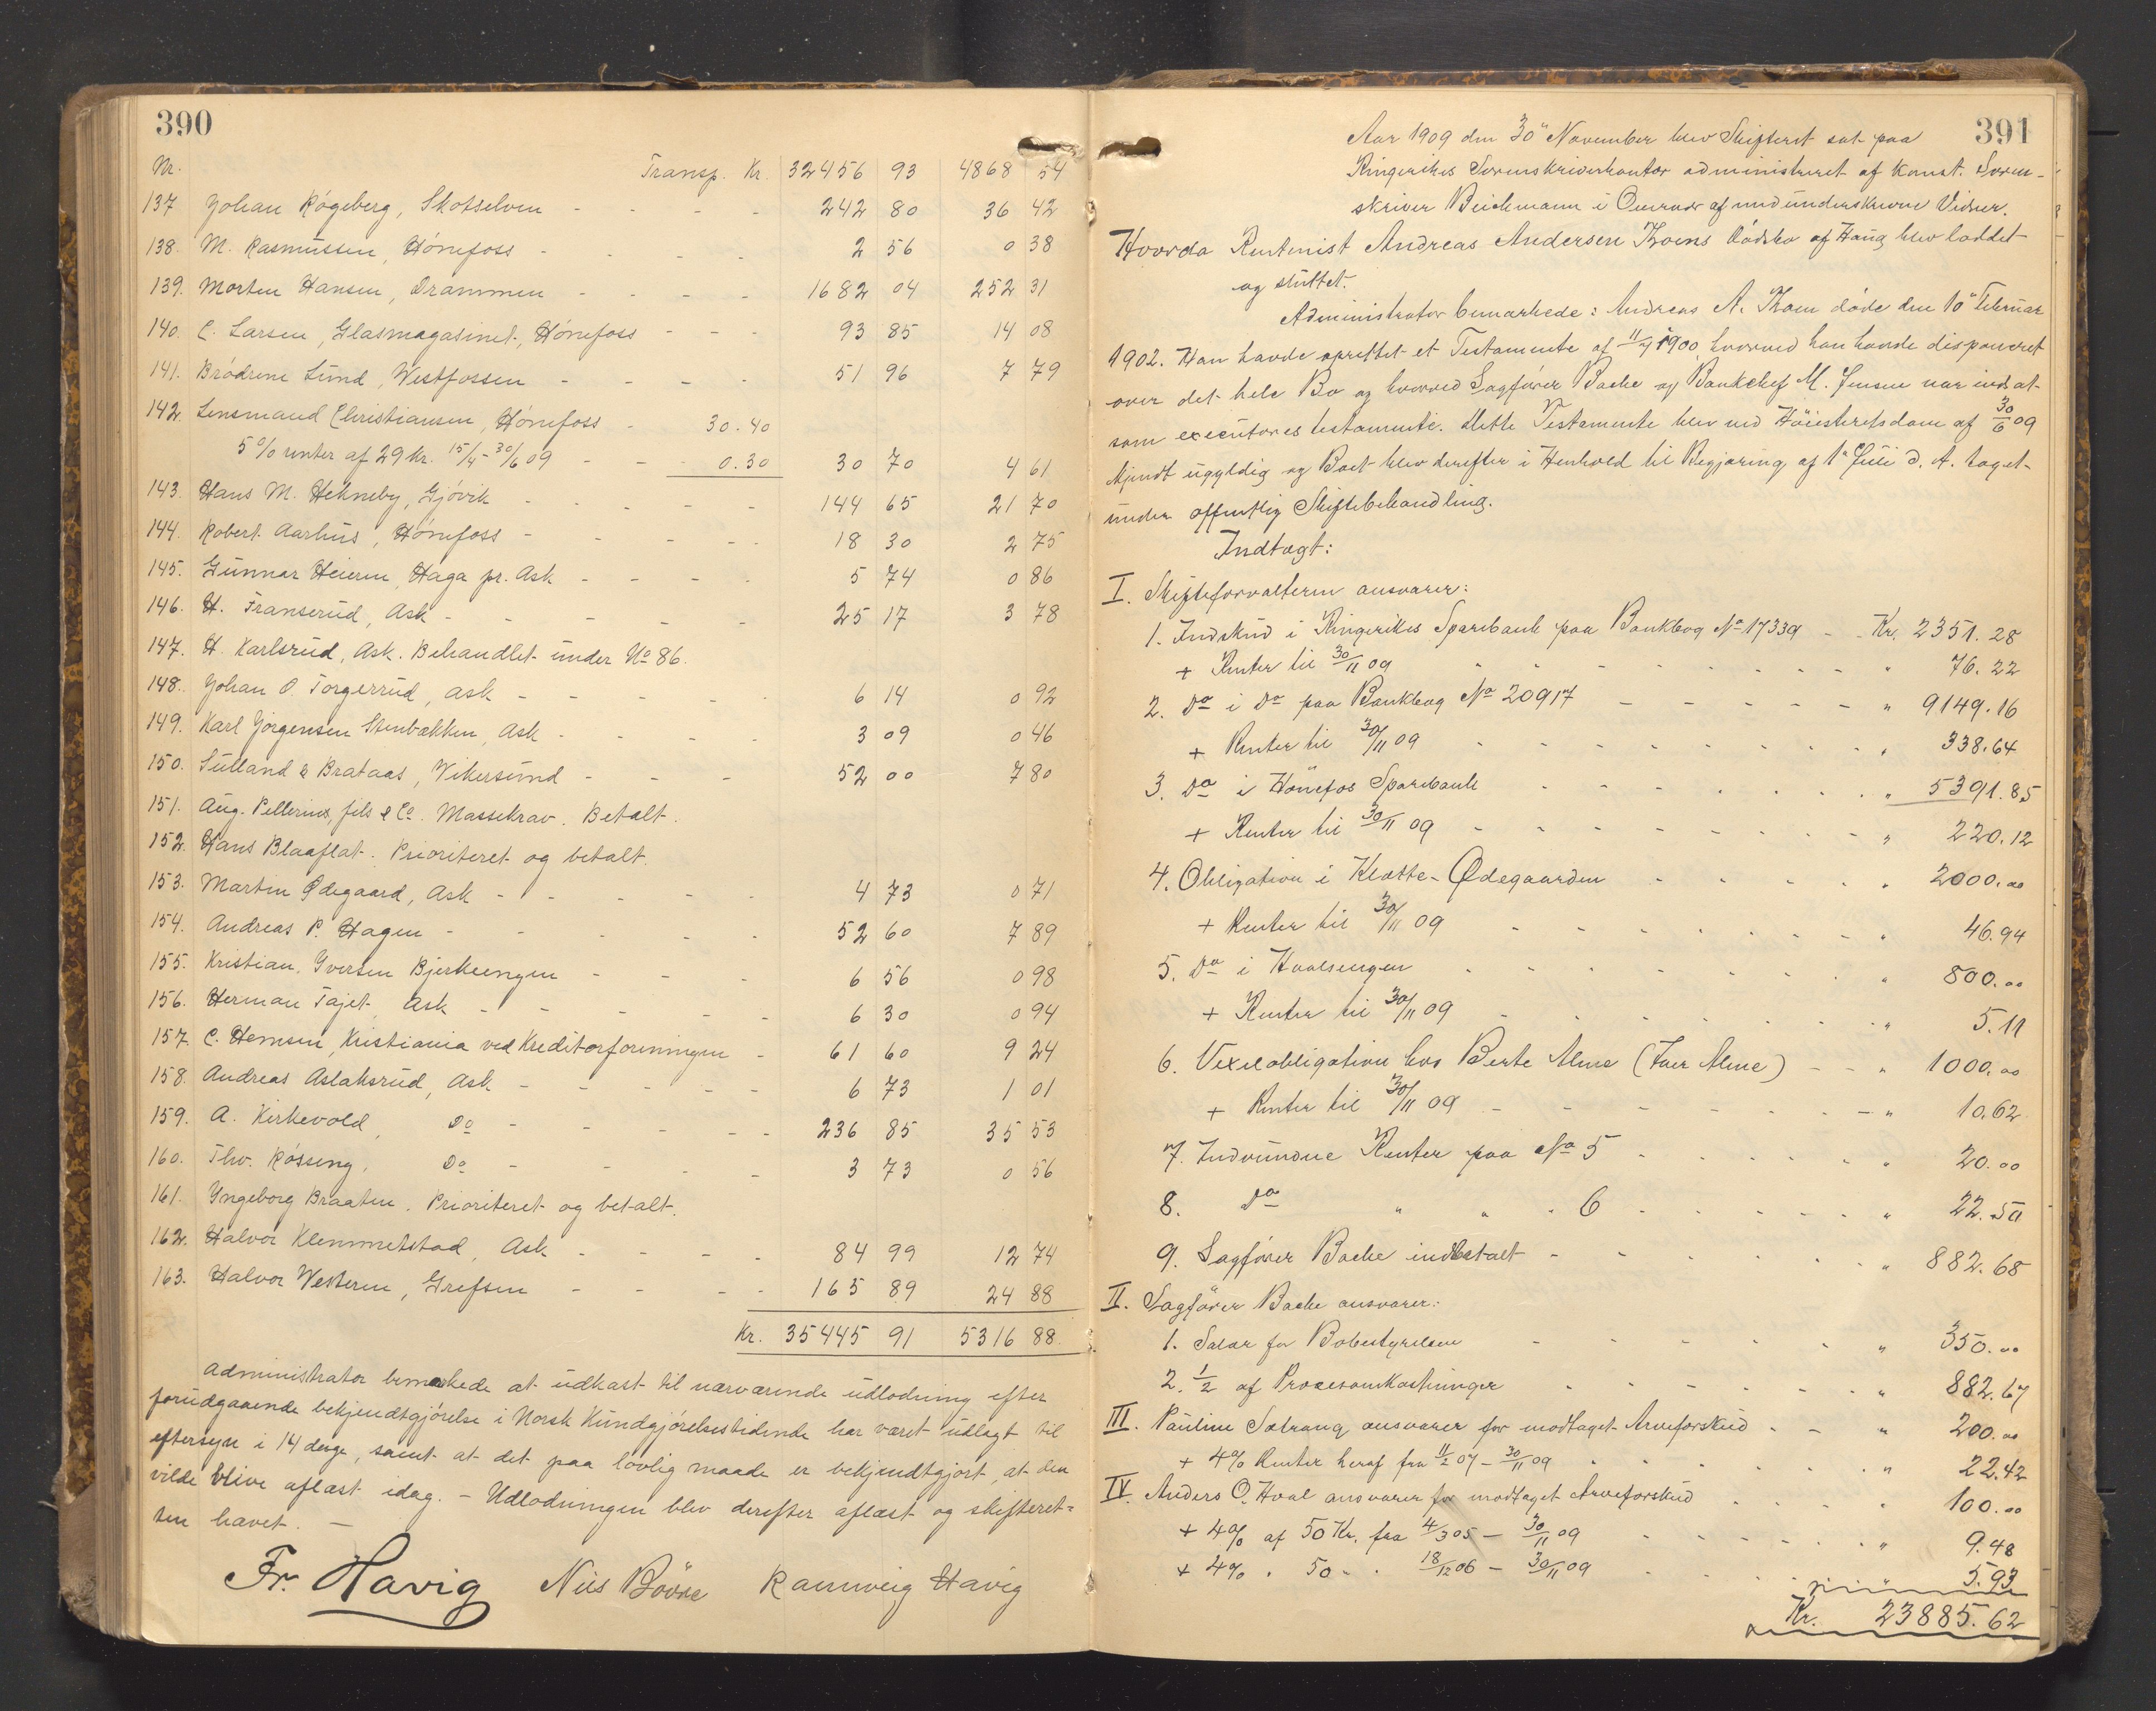 390
Nr. Transp. Kr. 32456 93 4868 54
137 Johan Røgeberg, Skotselven - - - - 242 80 36 42
138. M. Rasmussen, Hønefoss - - - - 2 56 0 38
139. Morten Hansen, Drammen - - - - 1682 04 252 31
140. C. Larsen, Glasmagasinet, Hønefoss - - - 93 85 14 08
141. Brødrene Lund, Westfossen - - - - 51 96 7 79
142. Lensmand Christiansen, Hønefoss - 30.40
5 % renter af 29 Kr. 15/4 - 30/6 09 - - 0.30 30 70 4 61
143. Hans M. Hekneby, Gjøvik - - - - - 144 65 21 70
144. Robert Aarhus, Hønefoss - - - - - 18 30 2 75
145. Gunnar Heieren, Haga pr. Ask - - - - 5 74 0 86
146. H. Franserud, Ask - - - - - 25 17 3 78
147. H. Karlsrud, Ask. Behandlet under No 86.
148. Johan O. Torgerrud, Ask - - - - - 6 14 0 92
149. Karl Jørgensen Stenbakken, Ask - - - - 3 09 0 46
150. Sulland & Brataas, Vikersund - - - 52 00 7 80
151. Aug. Pellerins, fils & Co. Massekrav. Betalt.
152. Hans Blaaflat. Prioriteret og betalt.
153. Martin Ødegaard, Ask - - - - - 4 73 0 71
154. Andreas P. Hagen - - - - - 52 60 7 89
155. Kristian Iversen Bjerkeengen - - - 6 56 0 98
156. Herman Tajet, Ask - - - - - 6 30 0 94
157. C. Hemsen, Kristiania ved Kreditorforeningen - 61 60 9 24
158. Andreas Aslaksrud, Ask - - - - - 6 73 1 01
159. A. Kirkevold, Do - - - - - 236 85 35 53
160. Thv. Røssing, Do - - - - 3 73 0 56
161. Ingeborg Braaten. Prioriteret og betalt.
162. Halvor Klemmetstad, Ask - - - - 84 99 12 74
163. Halvor Westeren, Grefsen - - - - 165 89 24 88
Kr. 35445 91 5316 88
Administrator bemærkede at udkast til nærværende udlodning efter
forudgaaende bekjendtgjørelse i Norsk Kundgjørelsestidende har været udlagt til
eftersyn i 14 dage, samt at det paa lovlig maade er bekjendtgjort, at den
vilde blive aflæst idag. - Udlodningen blev derefter aflæst og skifteret-
ten hævet. -
Fr. Havig Nils Bøvre Ranveig Havig
391
Aar 1909 den 30" November blev Skifteret sat paa
Ringerikes Sorenskriverkontor administreret af Konst. Soren-
skriver Beichmann i Overvær af medunderskrevne Vidner.
Hvorda Rentenist Andreas Andersen Hvens Dødsbo af Haug blev loddet
og sluttet.
Administrator bemærkede: Andreas A. døde den 10" Februar
1902. Han havde oprettet et Testamente af 11/4 1900, hvorved han havde disponeret
over det hele Bo og hvorved Sagfører Bache og Bankchef M. Jensen var indsat
som executores testamenti. Dette Testamente blev ved Høiesteretsdom af 30/6 09
kjendt ugyldig og Boet blev derefter i Henhold til Begjæring af 1" Juli d. A. taget
under offentlig Skiftebehandling.
Indtægt:
I. Skifteforvalteren ansvarer:
1. Indskud i Ringerikes Sparebank paa Bankbog No 17339 - - Kr. 2351.28
+ Renter til 30/11 09 - - - - - - - " 76.22
2. Do i Do paa Bankbog No 20917 - - - - - " 9149.16
+ Renter til 30/11 09 - - - - - - - " 338.64
3. Do i Hönefos Sparebank - - - - - - " 5391.85
+ Renter til 30/11 09 - - - - - - - " 220.12
4. Obligation i Kløtte-Ødegaarden - - - - " 2000.00
+ Renter til 30/11 09 - - - - - - " 46.94
5. Do i Hvalsengen - - - - - - " 800.00
+ Renter til 30/11 09 - - - - - - " 5.11
6. Vexelobligation hos Berte Alme (Iver Alme) - - " 1000.00
+ Renter til 30/11 09 - - - - - - " 10.62
7. Indvundne Renter paa No 5 - - - - - " 20.00
8. Do " " " 6 - - - - - " 22.50
9. Sagfører Bache indbetalt - - - - - " 882.68
II. Sagfører Bache ansvarer:
1. Salær for Bobestyrelsen - - - - - " 350.00
2. 1/2 af Procesomkostninger - - - - - " 882.67
III. Pauline Sætrang ansvarer for modtaget Arveforskud - - " 200.00
+ 4% Renter heraf fra 11/2 07 - 30/11 09 - - - - " 22.42
IV. Anders O. Hval ansvarer for modtaget Arveforskud - - - " 100.00
+ 4% af 50 Kr. fra 4/3 05 - 30/11 09 - - - - " 9.48
+ 4% " 50 " " 18/12 06 - 30/11 09 - - - - " 5.93
Kr. 23885.62